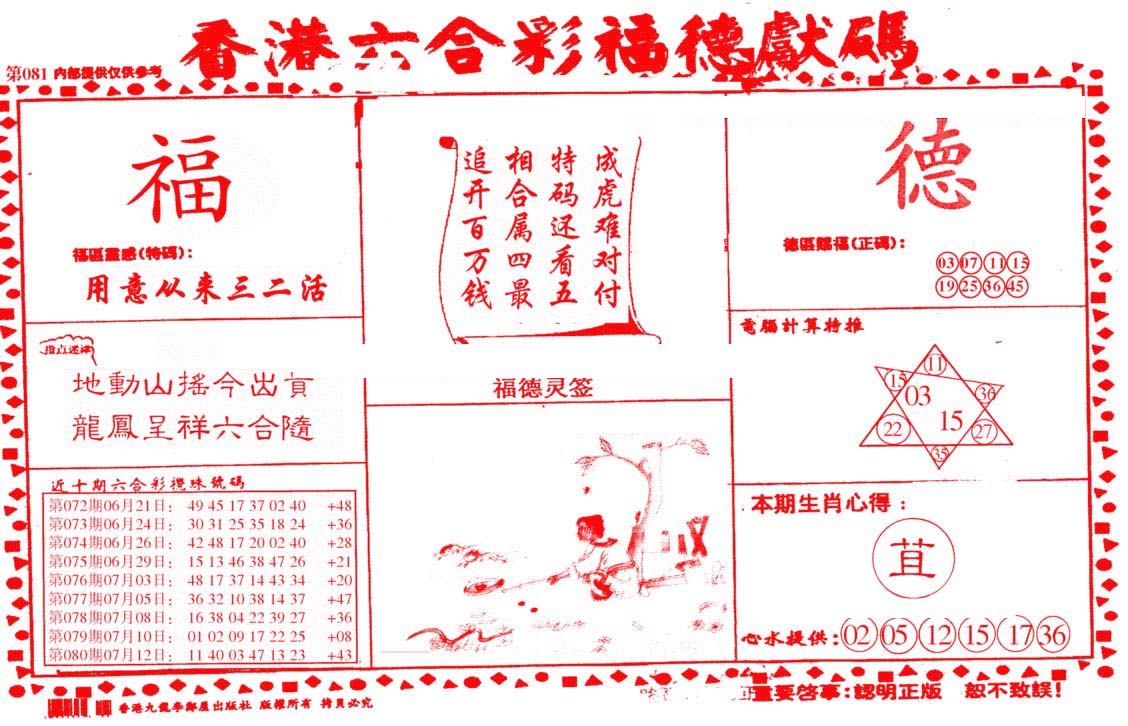 香港六合彩福德獻碼
第081 内部提供仅供参考
福
福區靈感(特碼):
用意从来三二活
成虎难对付
特码还看五
相合属四最
追开百万钱
德
德區賜福(正碼):
03 07 11 15
19 25 36 45
地動山搖今出貢
龍鳳呈祥六合隨
福德灵签
電腦計算特推
11
15
36
03
15
22
27
35
近十期六合彩攪珠號碼
第072期06月21日: 49 45 17 37 02 40 +48
第073期06月24日: 30 31 25 35 18 24 +36
第074期06月26日: 42 48 17 20 02 40 +28
第075期06月29日: 15 13 46 38 47 26 +21
第076期07月03日: 48 17 37 14 43 34 +20
第077期07月05日: 36 32 10 38 14 37 +47
第078期07月08日: 16 38 04 22 39 27 +36
第079期07月10日: 01 02 09 17 22 25 +08
第080期07月12日: 11 40 03 47 13 23 +43
本期生肖心得:
苴
心水提供: 02 05 12 15 17 36
香港九龍李鄭屋出版社 版權所有 拷貝必究
重要啓事:認明正版 恕不致誤!